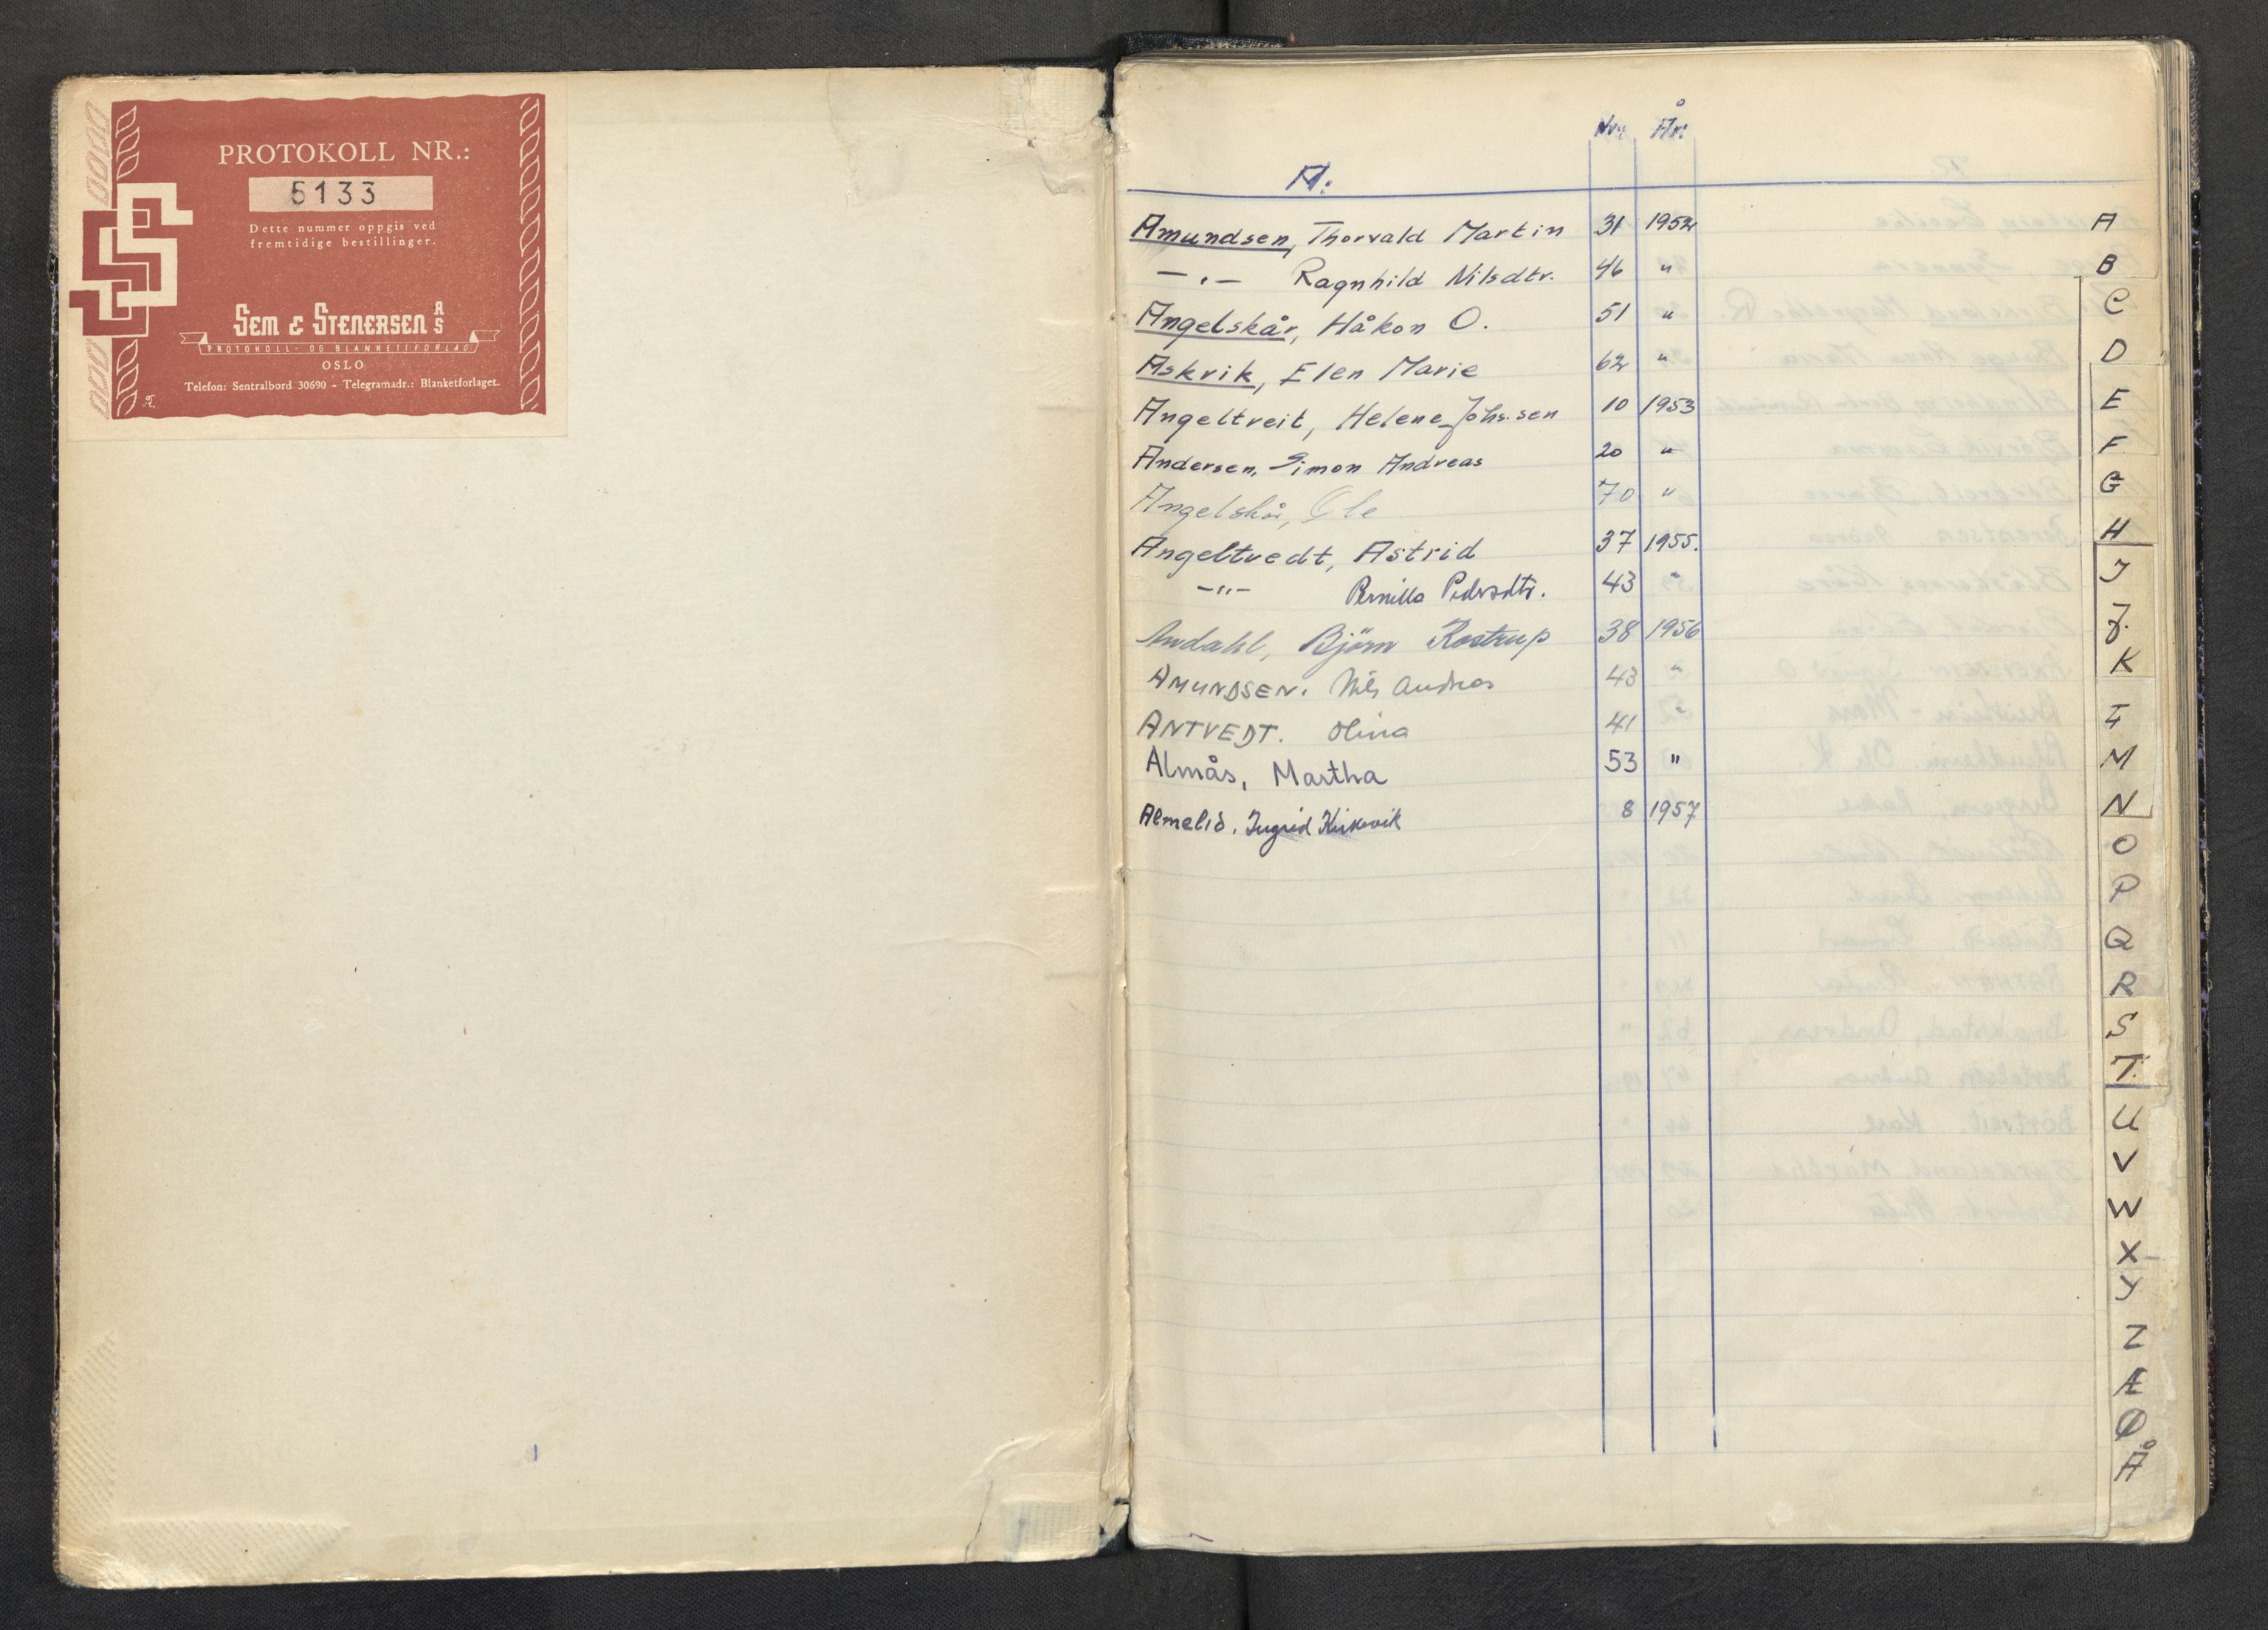 PROTOKOLL NR.:
5133
Dette nummer oppgis ved
fremtidige bestillinger.
SEM & STENERSEN A/S
PROTOKOLL- OG BLANKETTFORLAG
OSLO
Telefon: Sentralbord 30690 - Telegramadr.: Blanketforlaget.
Nr: År:
A:
Amundsen, Thorvald Martin 31 1952
-"- Ragnhild Nilsdtr. 46 "
Angelskår, Håkon O. 51 "
Askvik, Elen Marie 62 "
Angeltveit, Helene Johs.sen 10 1953
Andersen, Simon Andreas 20 "
Angelskår, Ole 70 "
Angeltvedt, Astrid 37 1955.
-"- Pernilla Pedersdtr. 43 "
Amdahl, Björn Rostrup 38 1956
AMUNDSEN. Nils Andreas 43 "
ANTVEDT. Olina 41 "
Almås, Martha 53 "
Almelid, Ingrid Kirkevik 8 1957
A
B
C
D
E
F
G
H
I
J.
K
Ł
M
N
O
P
Q
R
S
T.
U
V
W
X
Y
Z
Æ
Ø
Å